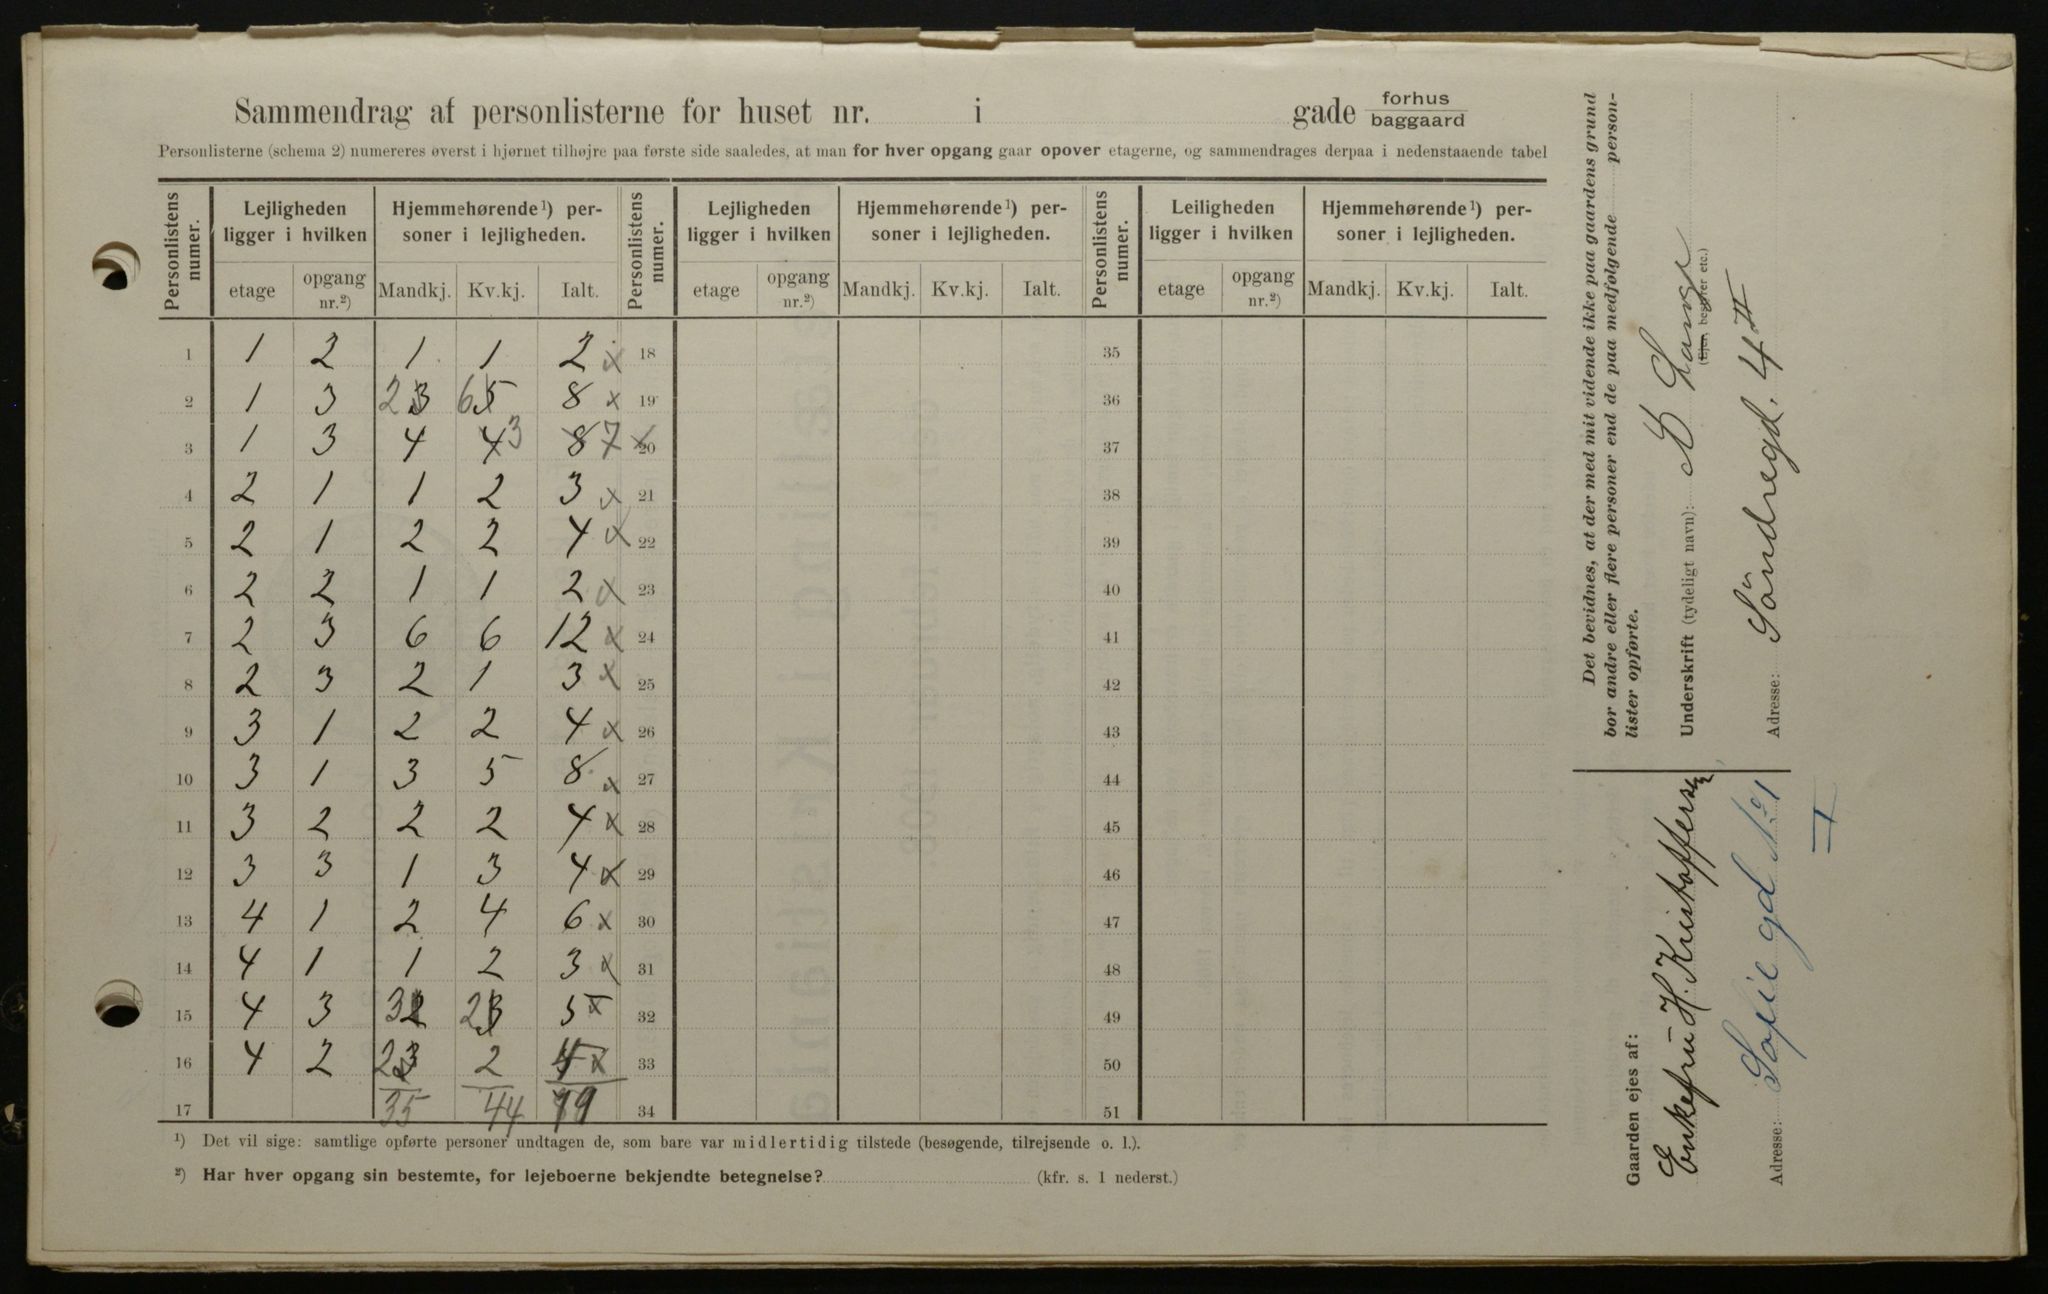 Sammendrag af personlisterne for huset nr. i gade forhus baggaard
Personlisterne (schema 2) numereres øverst i hjørnet tilhøjre paa første side saaledes, at man for hver opgang gaar opover etagerne, og sammendrages derpaa i nedenstaaende tabel
Personlistens numer. Lejligheden ligger i hvilken Hjemmehørende ¹) personer i lejligheden. Personlistens numer. Lejligheden ligger i hvilken Hjemmehørende ¹) personer i lejligheden. Personlistens numer. Leiligheden ligger i hvilken Hjemmehørende ¹) personer i lejligheden.
etage opgang nr.²) Mandkj. Kv.kj. Ialt. etage opgang nr.²) Mandkj. Kv.kj. Ialt. etage opgang nr.²) Mandkj. Kv.kj. Ialt.
1 1 2 1 1 2 x 18 35
2 1 3 2 3 6 5 8 x 19 36
3 1 3 4 4 3 8 7 x 20 37
4 2 1 1 2 3 x 21 38
5 2 1 2 2 4 x 22 39
6 2 2 1 1 2 x 23 40
7 2 3 6 6 12 x 24 41
8 2 3 2 1 3 x 25 42
9 3 1 2 2 4 x 26 43
10 3 1 3 5 8 x 27 44
11 3 2 2 2 4 x 28 45
12 3 3 1 3 4 x 29 46
13 4 1 2 4 6 x 30 47
14 4 1 1 2 3 x 31 48
15 4 3 3 2 2 3 5 x 32 49
16 4 2 2 3 2 4 x 33 50
17 35 44 79 34 51
¹) Det vil sige: samtlige opførte personer undtagen de, som bare var midlertidig tilstede (besøgende, tilrejsende o. l.).
²) Har hver opgang sin bestemte, for lejeboerne bekjendte betegnelse? (kfr. s. 1 nederst.)
Det bevidnes, at der med mit vidende ikke paa gaardens grund
bor andre eller flere personer end de paa medfølgende person-
lister opførte.
Underskrift (tydeligt navn): Lange
(Ejer, bestyrer etc.)
Adresse: Söndregd. 4 II
Gaarden ejes af:
Enkefru H. Kristoffersen
Adresse: Sofie gd No 1
I